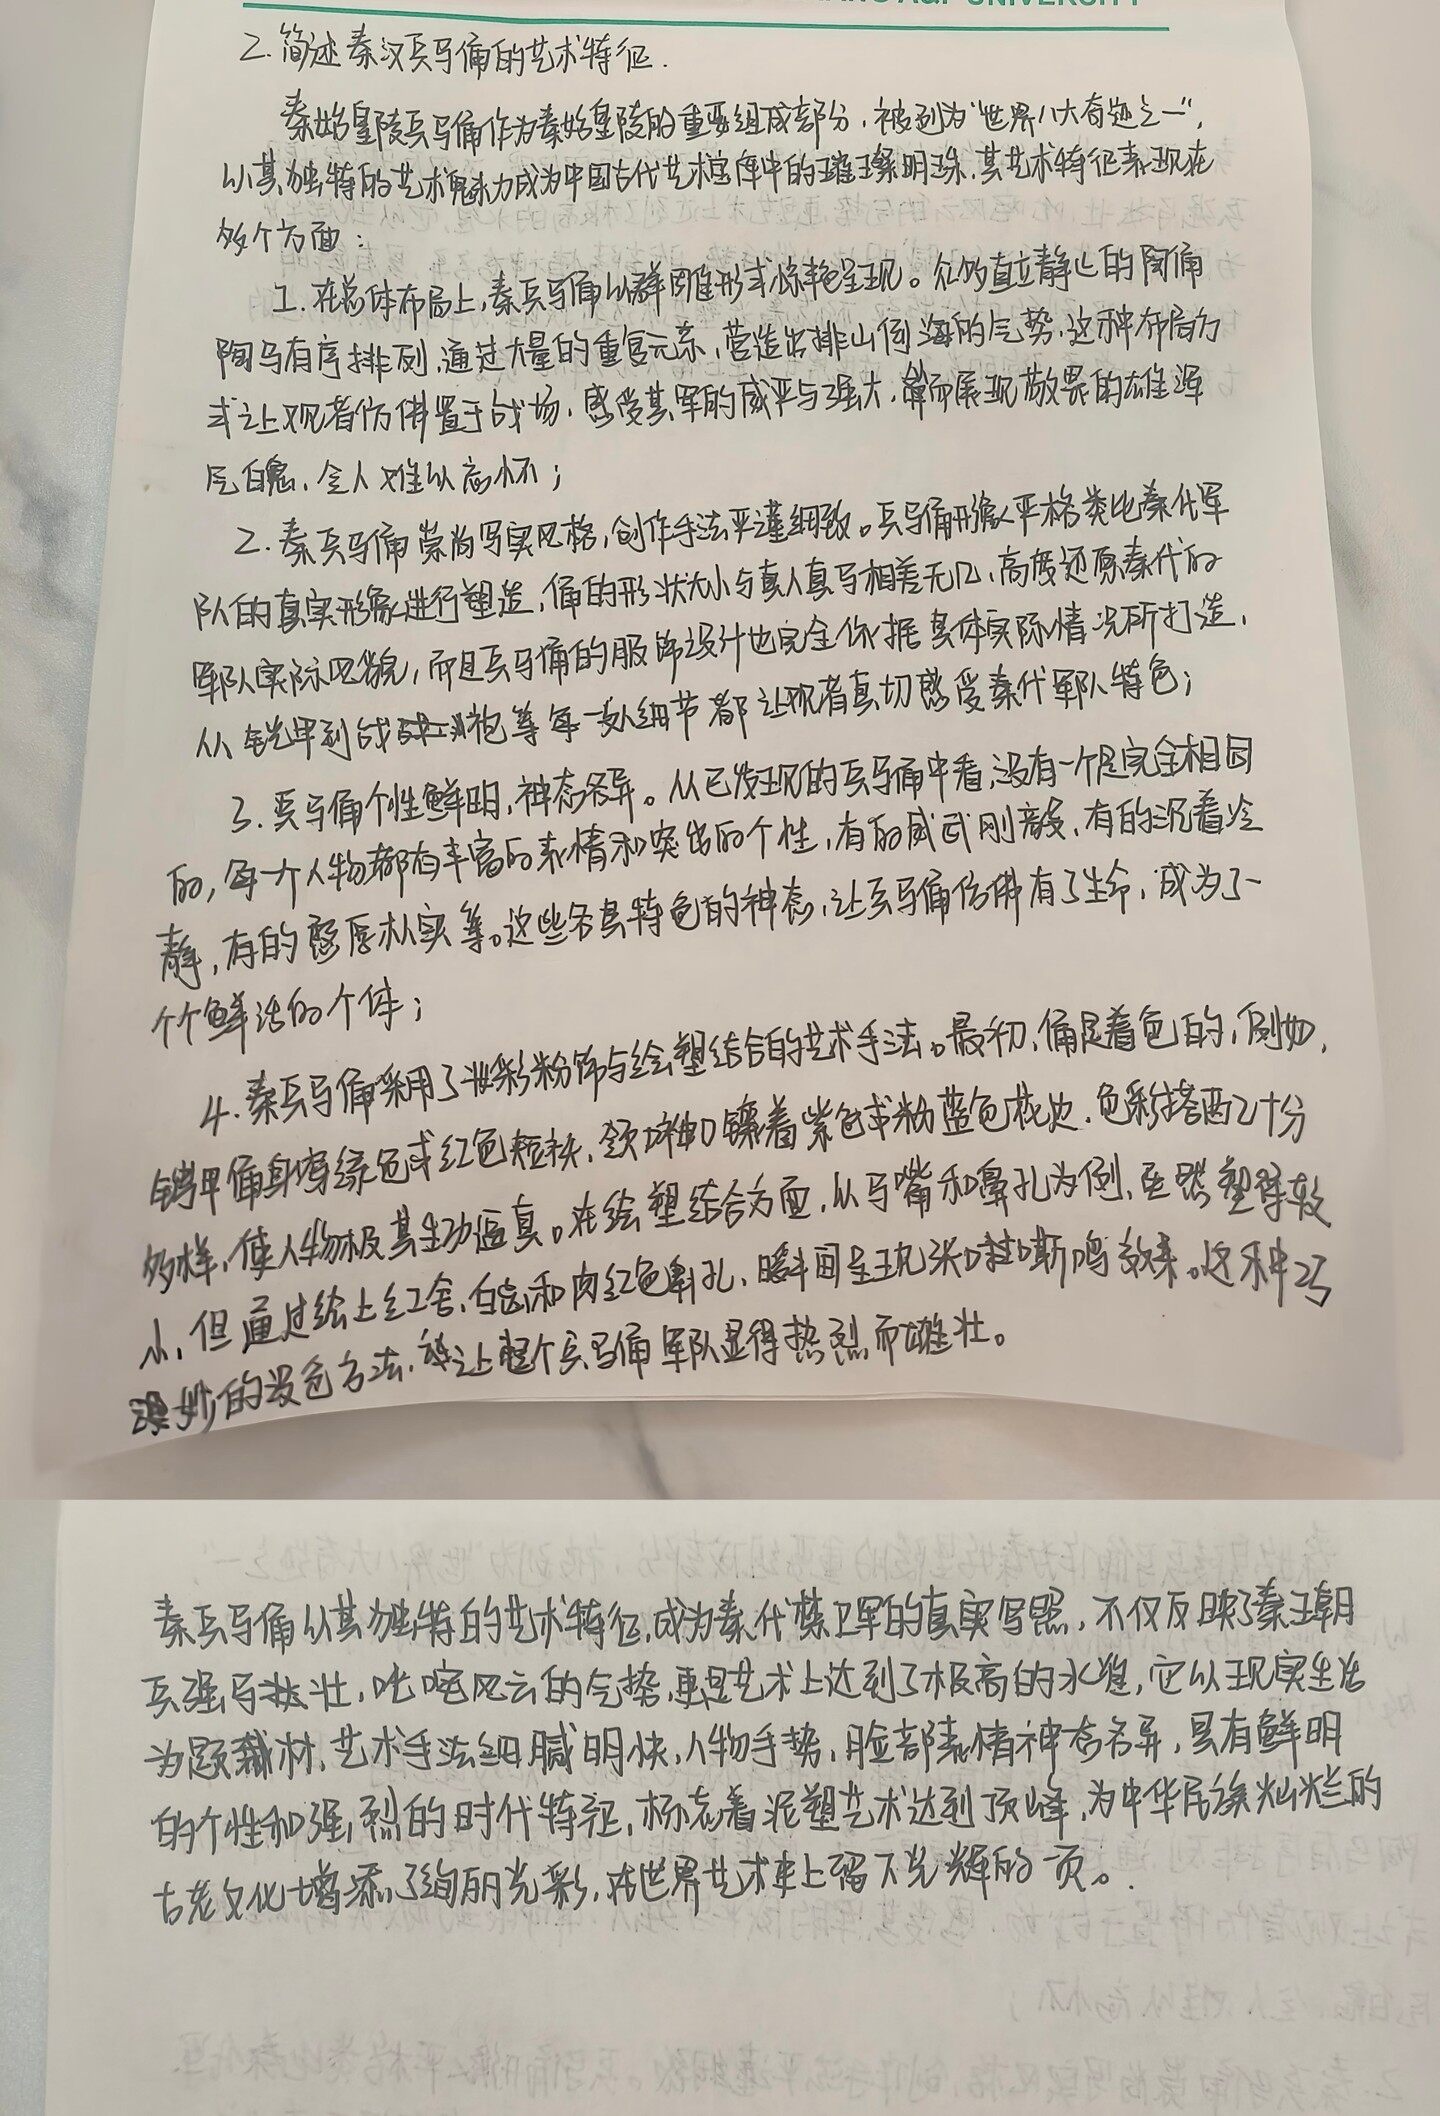 UNIVERSITY
2. 简述秦汉兵马俑的艺术特征.
秦始皇陵兵马俑作为秦始皇陵的重要组成部分，被列为"世界八大奇迹之一"，
以其独特的艺术魅力成为中国古代艺术宝库中的璀璨明珠，其艺术特征表现在
多个方面：
1. 在总体布局上，秦兵马俑以群雕形式惊艳呈现。众多直立静止的陶俑
陶马有序排列，通过大量的重复元素，营造出排山倒海的气势，这种布局方
式让观者仿佛置于战场，感受其军的威严与强大，展现敬畏的雄浑
气魄，令人难以忘怀；
2. 秦兵马俑崇尚写实风格，创作手法严谨细致。兵马俑形象严格类比秦代军
队的真实形象进行塑造，俑的形状大小与真人真马相差无几，高度还原秦代的
军队实际风貌，而且兵马俑的服饰设计也完全依据具体实际情况所打造，
从铠甲到战袍等每一处细节都让观者真切感受秦代军队特色；
3. 兵马俑个性鲜明，神态各异。从已发现的兵马俑中看，没有一个是完全相同
的，每一个人物都有丰富的表情和突出的个性，有的威武刚毅，有的沉着冷
静，有的憨厚朴实等。这些各具特色的神态，让兵马俑仿佛有了生命，成为了一
个个鲜活的个体；
4. 秦兵马俑采用了妆彩粉饰与绘塑结合的艺术手法。最初，俑是着色的，例如，
铠甲俑身穿绿色或红色短袄，领口袖口镶着紫色或粉蓝色花边，色彩搭配十分
多样，使人物极其生动逼真。在绘塑结合方面，从马嘴和鼻孔为例，虽然塑得较
小，但通过绘上红舌、白齿和肉红色鼻孔，瞬间呈现张口嘶鸣效果。这种巧
妙的设色方法，让整个兵马俑军队显得热烈而雄壮。
秦兵马俑以其独特的艺术特征，成为秦代禁卫军的真实写照，不仅反映了秦王朝
兵强马壮，叱咤风云的气势，更是艺术上达到了极高的水准，它以现实生活
为题材，艺术手法细腻明快，人物手势，脸部表情神态各异，具有鲜明
的个性和强烈的时代特征，标志着泥塑艺术达到顶峰，为中华民族灿烂的
古老文化增添了绚丽光彩，在世界艺术史上留下光辉的一页。